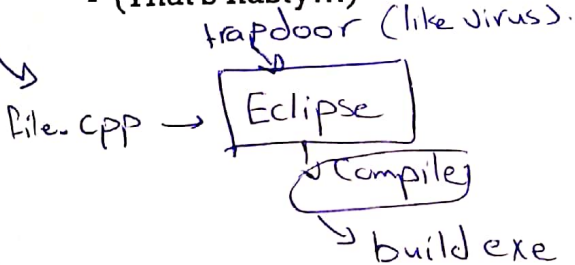 (That's nasty...)
trapdoor (like virus).
file.cpp → Eclipse
Compiler
build exe